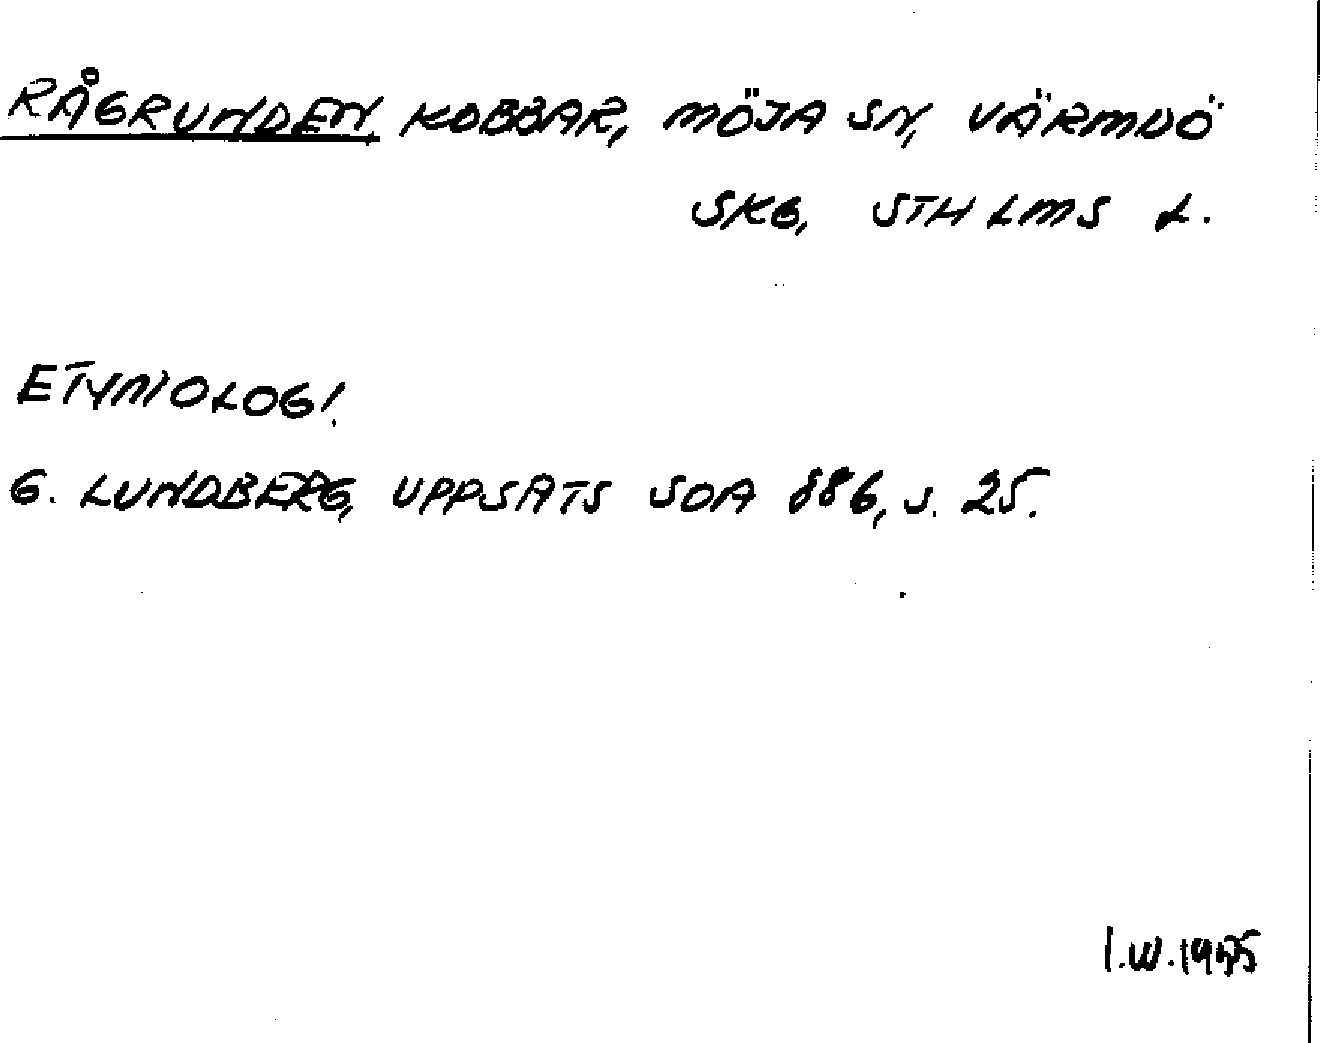 RÅGRUNDEN, KOBBAR, MÖJA SN, VÄRMDÖ
SKG, STHLMS L.
ETYMOLOGI.
G. LUNDBERG, UPPSATS SOA 886, S. 25.
I.W.